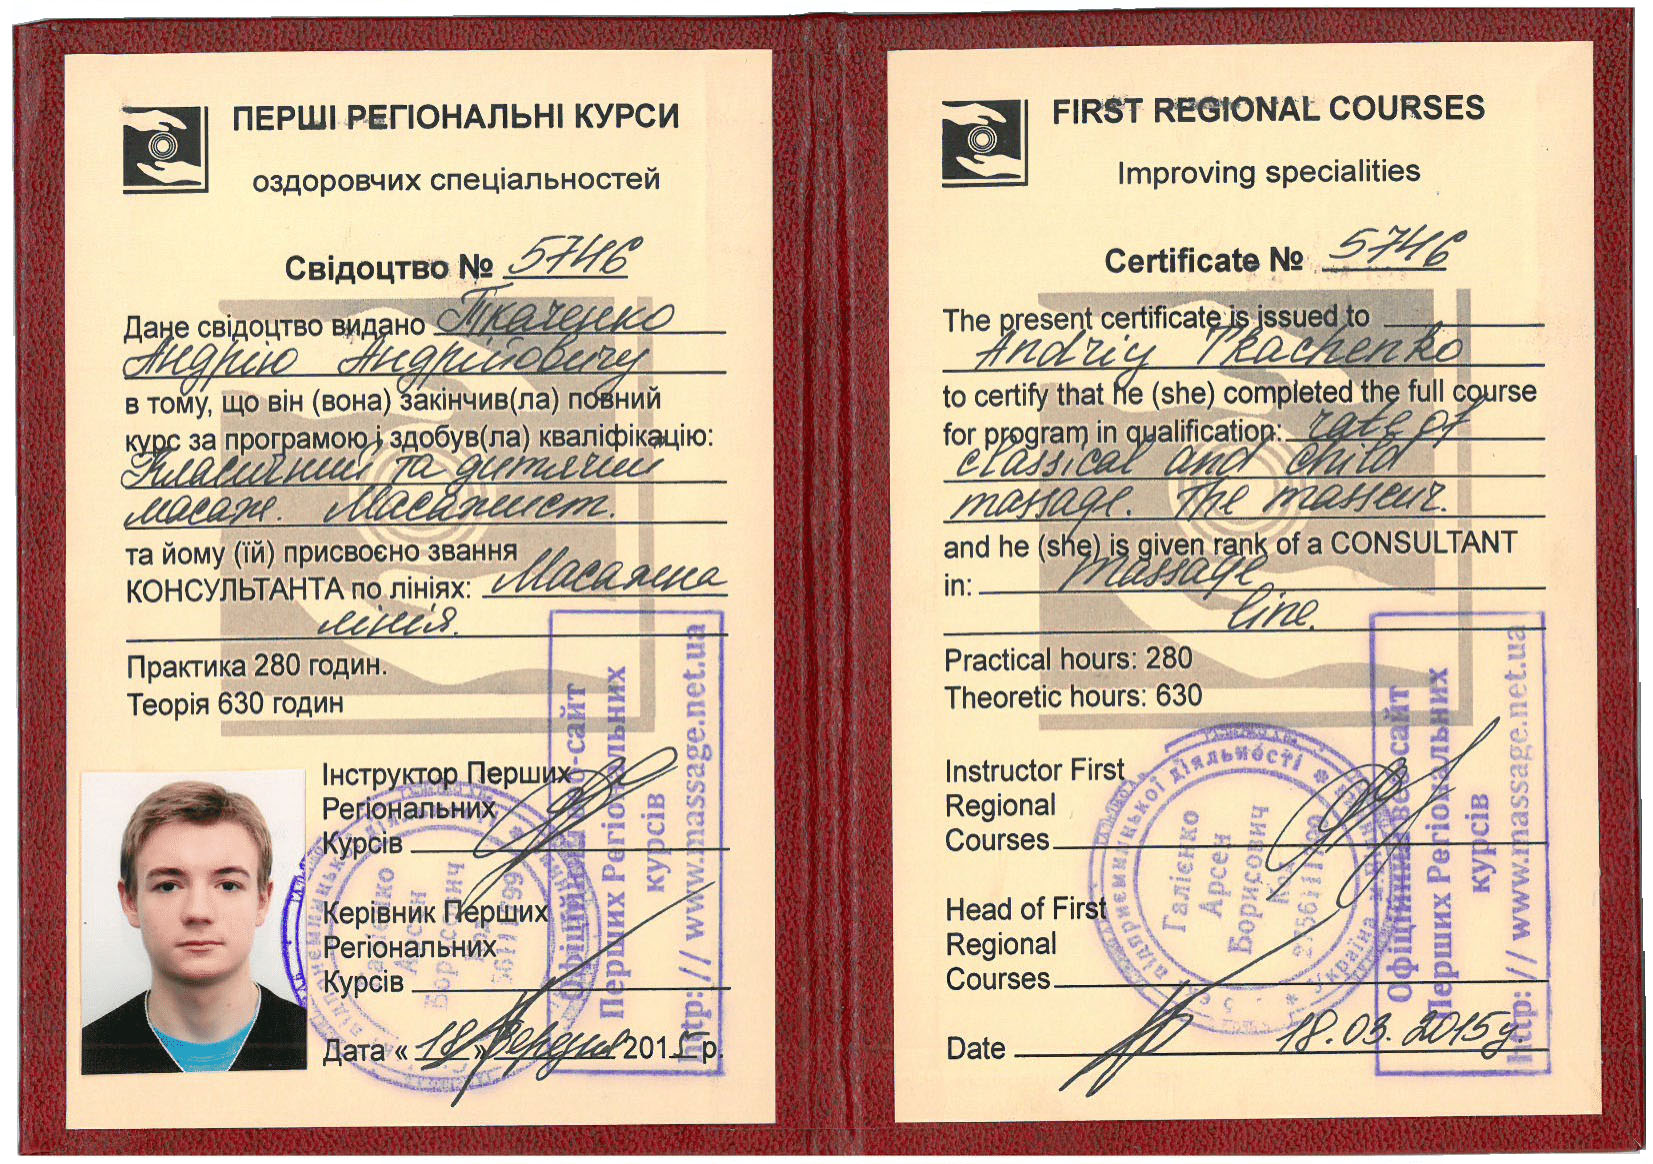 ПЕРШІ РЕГІОНАЛЬНІ КУРСИ
оздоровчих спеціальностей
Свідоцтво № 5746
Дане свідоцтво видано Ткаченко
Андрію Андрійовичу
в тому, що він (вона) закінчив(ла) повний
курс за програмою і здобув(ла) кваліфікацію:
Класичний та дитячий
масаж. Масажист.
та йому (їй) присвоєно звання
КОНСУЛЬТАНТА по лініях: Масажна
лінія.
Практика 280 годин.
Теорія 630 годин
Інструктор Перших
Регіональних
Курсів
Керівник Перших
Регіональних
Курсів
Дата « 18 » березня 2015 р.
Офіційний веб-сайт
Перших Регіональних
курсів
http://www.massage.net.ua
FIRST REGIONAL COURSES
Improving specialities
Certificate № 5746
The present certificate is issued to
Andriy Tkachenko
to certify that he (she) completed the full course
for program in qualification: rate of
classical and child
massage. The masseur.
and he (she) is given rank of a CONSULTANT
in: massage
line.
Practical hours: 280
Theoretic hours: 630
Instructor First
Regional
Courses
Head of First
Regional
Courses
Date 18.03.2015у.
Галієнко
Арсен
Борисович
Код
Офіційний веб-сайт
Перших Регіональних
курсів
http://www.massage.net.ua